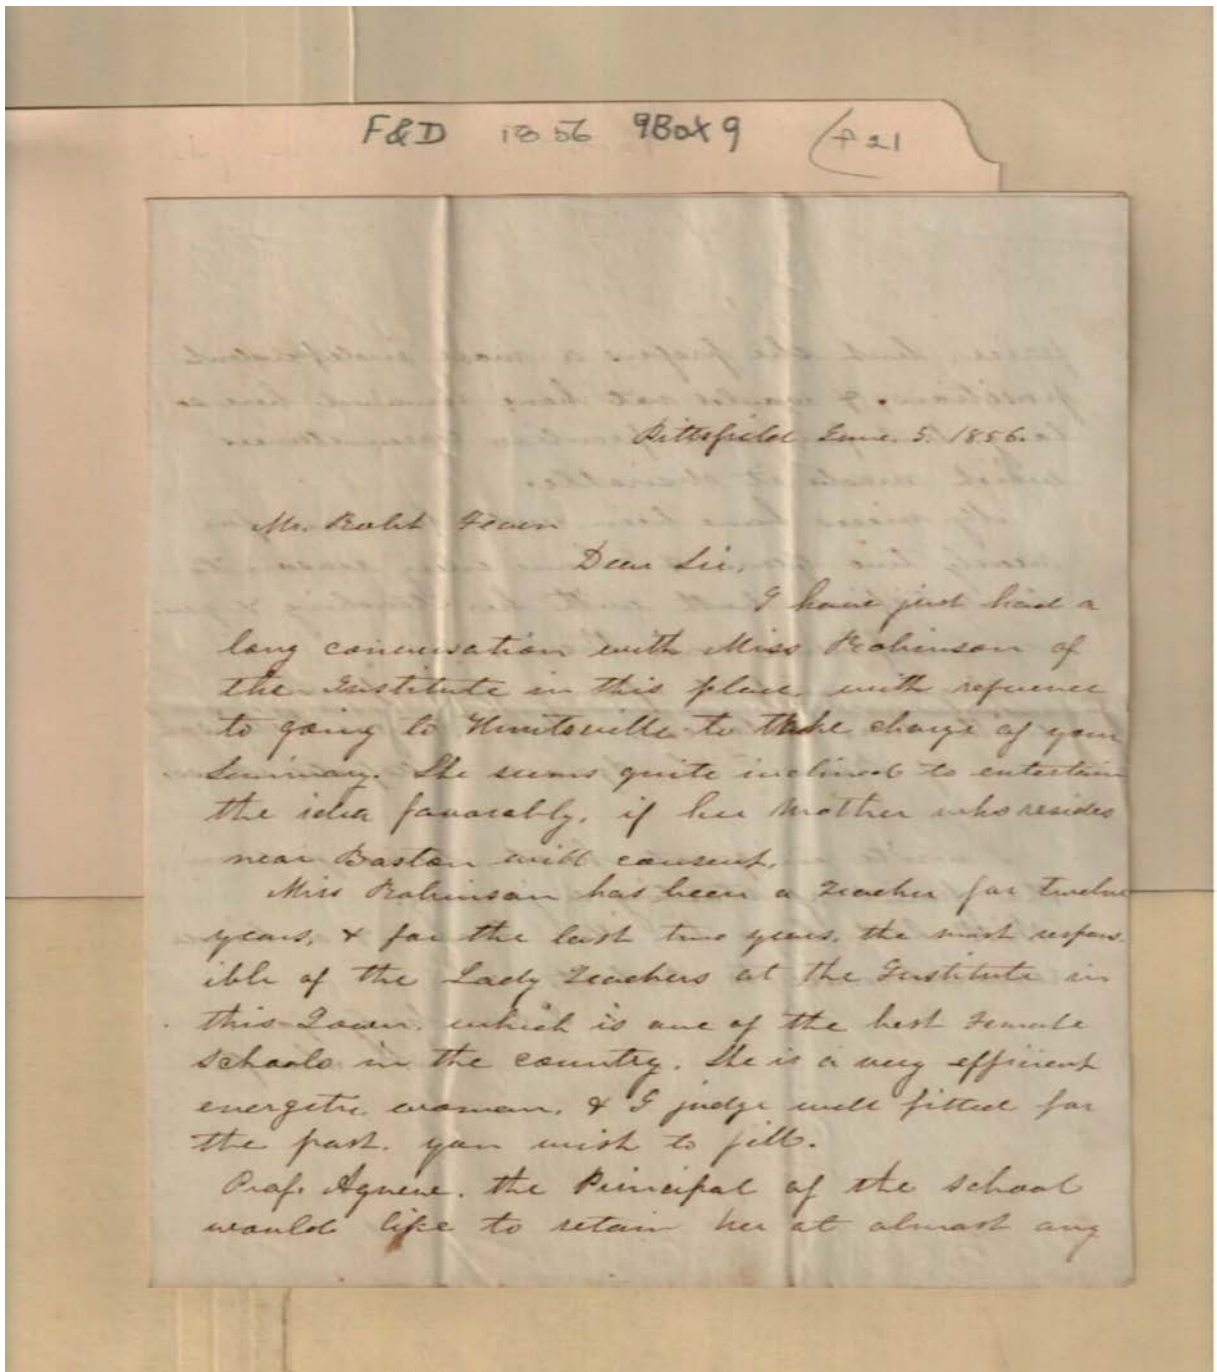 F&D 1856 9Box9 (f21
Pittsfield June. 5. 1856.
Mr. Robt Fearn
Dear Sir,
I have just had a
long conversation with Miss Robinson of
the Institute in this place with refference
to going to Huntsville to take charge of your
Seminary. She seems quite inclined to entertain
the idea favorably, if her Mother who resides
near Boston will consent.
Miss Robinson has been a Teacher for twelve
years, & for the last two years, the most respons-
ible of the Lady Teachers at the Institute in
this Town. which is one of the best Female
schools in the country. She is a very efficient
energetic woman, & I judge well fitted for
the post. you wish to fill.
Prof. the Principal of the school
would like to retain her at almost any